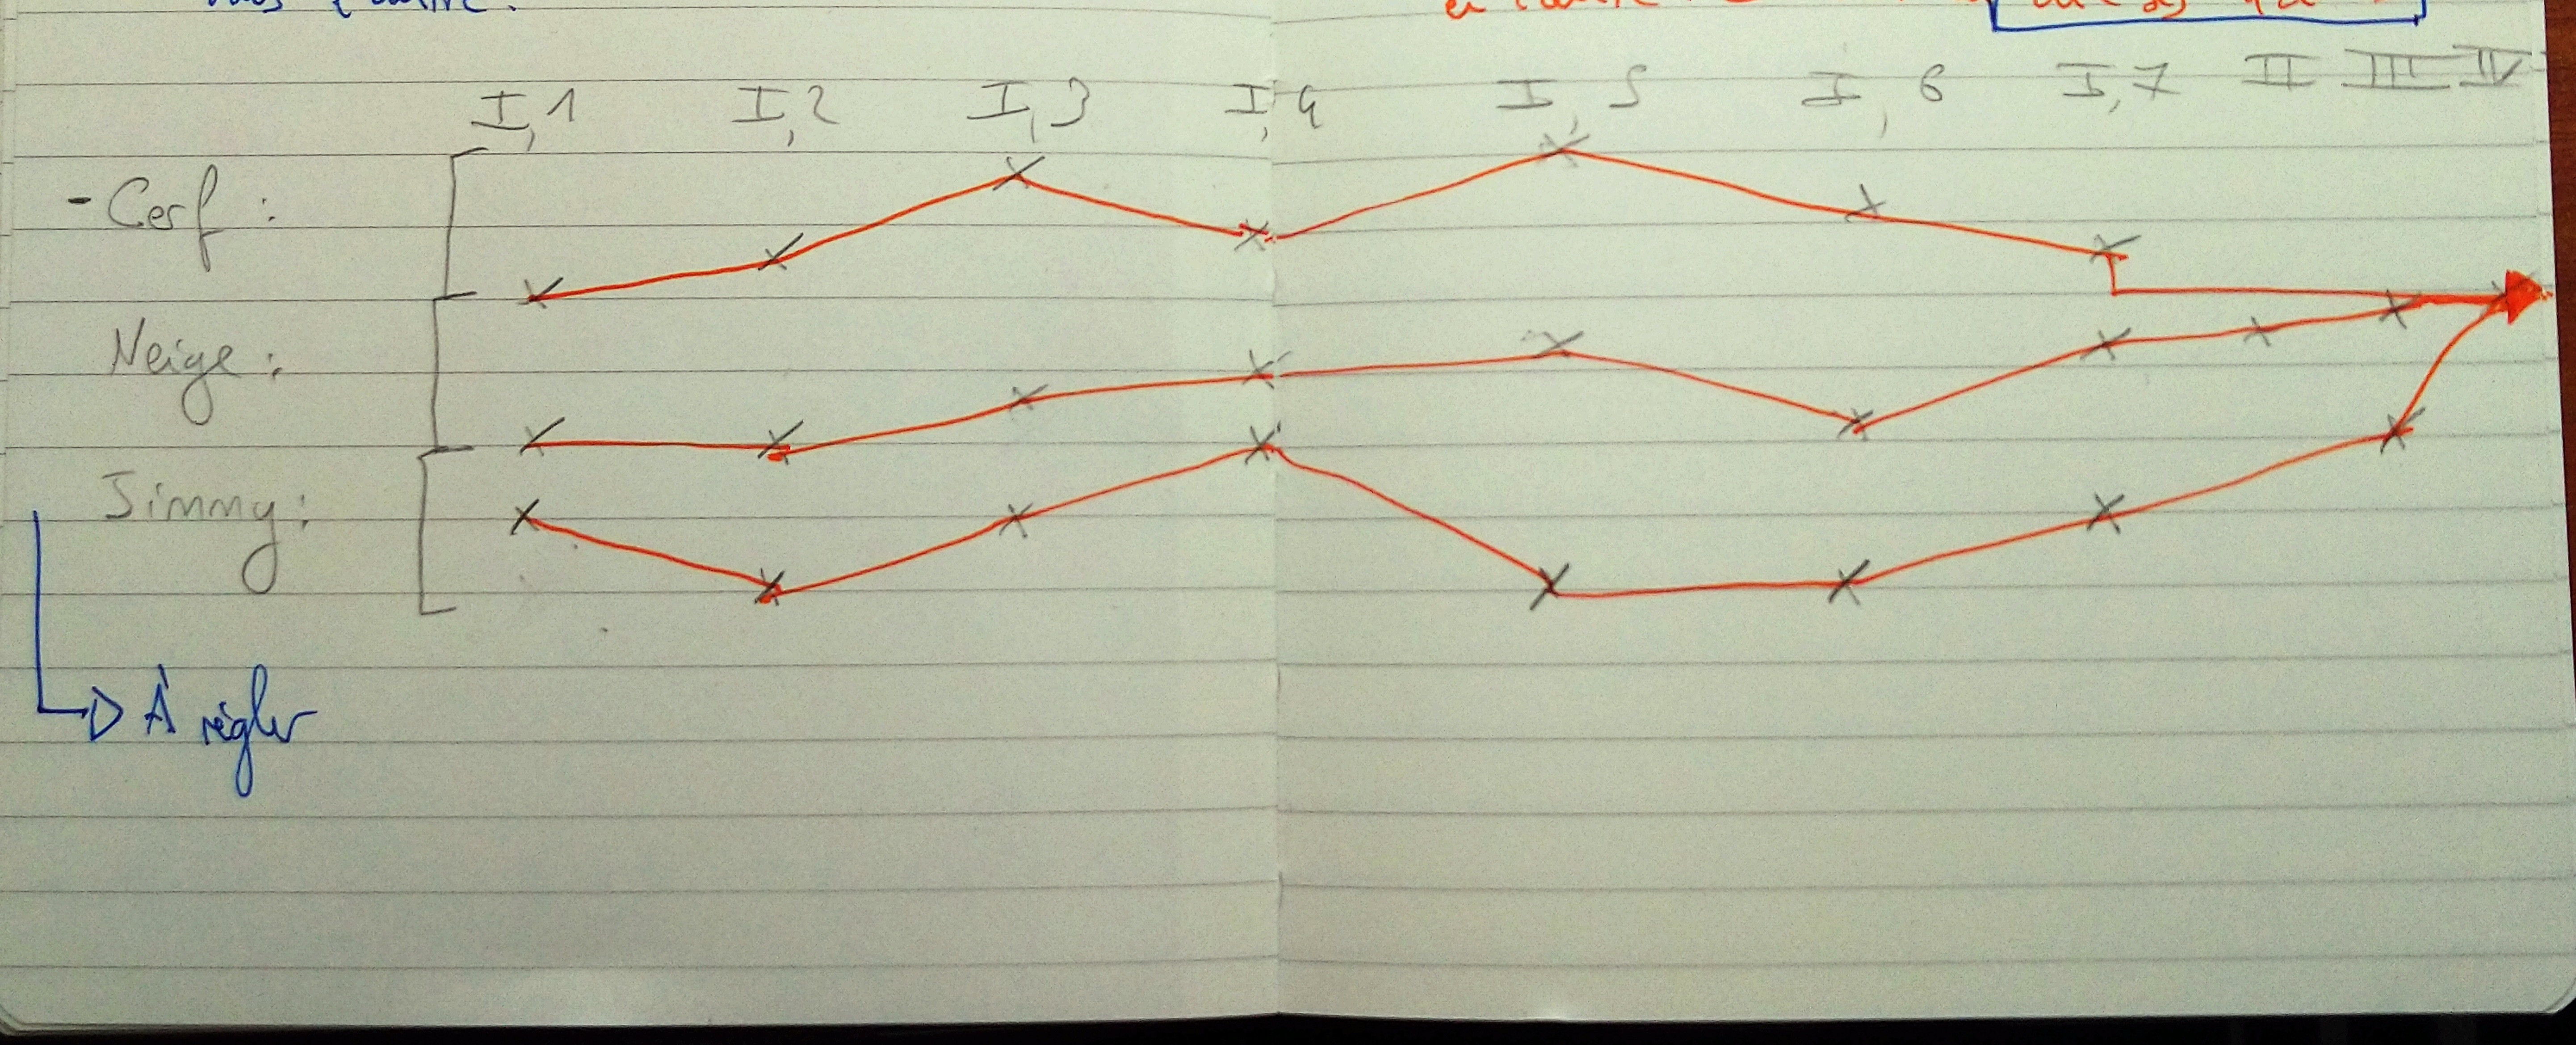 I,1 I,2 I,3 I,4 I,5 I,6 I,7 II III IV
- Cerf :
Neige :
Jimmy :
À régler